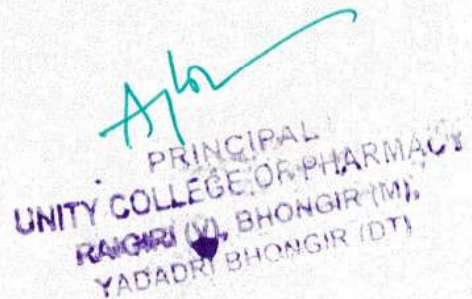 PRINCIPAL
UNITY COLLEGE OF PHARMACY
RAIGIRI (V), BHONGIR (M),
YADADRI BHONGIR (DT)